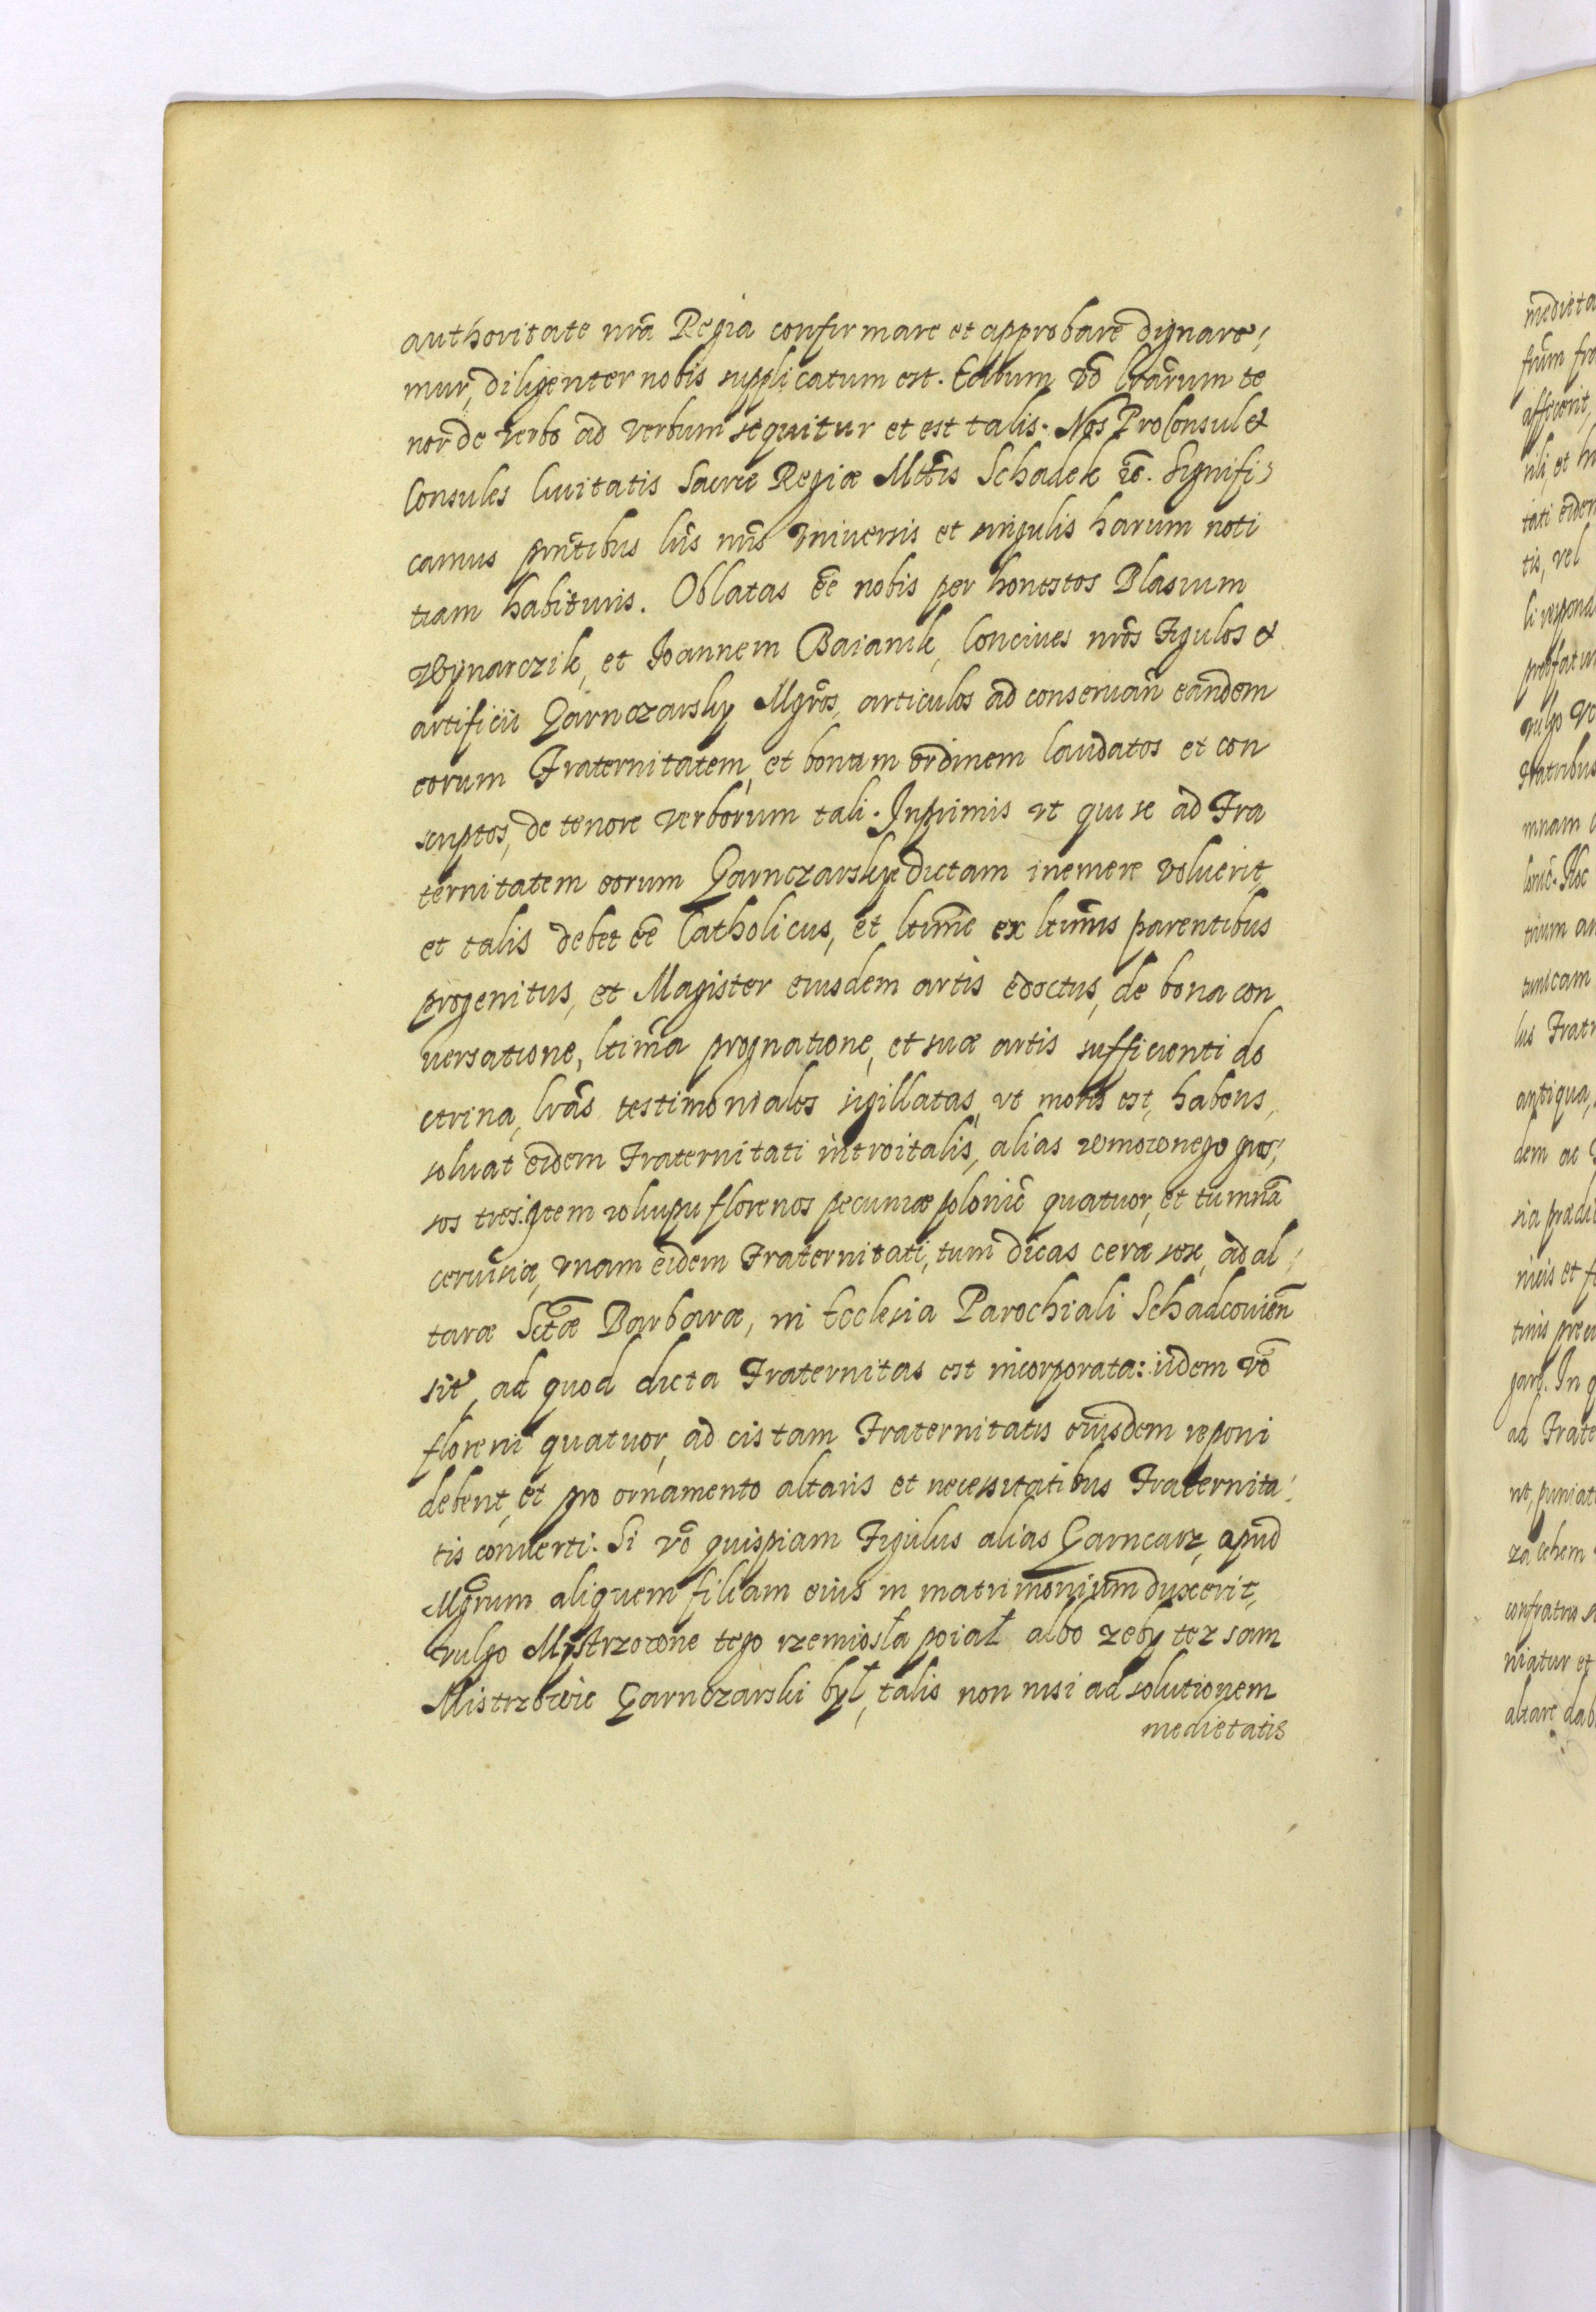 authoritate nrã Regia confirmare et approbare dignare,
mur, diligenter nobis supplicatum est. Earum vō lrārum te
nor de verbo ad verbum sequitur et est talis. Nos ProConsul et
Consules Civitatis Sacræ Regiæ Mttis Schadek &c. Signifi,
camus pñtibus lris nris Vniuersis et singulis harum noti
tiam habituris. Oblatas eē nobis per honestos Blasium
Wynarczik, et Joannem Baianik, Conciues nrōs Figulos et
artificii Garnczarsky Mgrōs, articulos ad conseruañ eandem
eorum Fraternitatem, et bonum ordinem laudatos et con
scriptos, de tenore verborum tali. Inprimis vt qui se ad Fra
ternitatem eorum Garnczarskye dictam inemere voluerit,
et talis debet eē Catholicus, et ltimē ex ltimis parentibus
progenitus, et Magister eiusdem artis edoctus, de bona con
uersatione, ltima prognatione, et suæ artis sufficienti do
ctrina, lrās testimoniales sigillatas, vt moris est, habens,
soluat eidem Fraternitati introitalis, alias wmownego gros,
sos tres. Item wkupu florenos pecuniæ polonic quatuor, et tumnā
ceruisiæ, vnam eidem Fraternitati, tum dicas ceræ sex, ad al,
taræ Sctæ Barbaræ, in Ecclesia Parochiali Schadcouień
sit, ad quod dicta Fraternitas est incorporata: iidem vō
floreni quatuor, ad cistam Fraternitatis eiusdem reponi
debent, et pro ornamento altaris et necessitatibus Fraternita,
tis conuerti. Si vō quispiam Figulus alias Garncarz, apud
Mgrum aliquem filiam eius in matrimonium duxerit,
vulgo Mystrzowne tego rzemiosła poiał albo zeby tez sam
Mistrzowic Garnczarski był, talis non nisi ad solutionem
medietatis